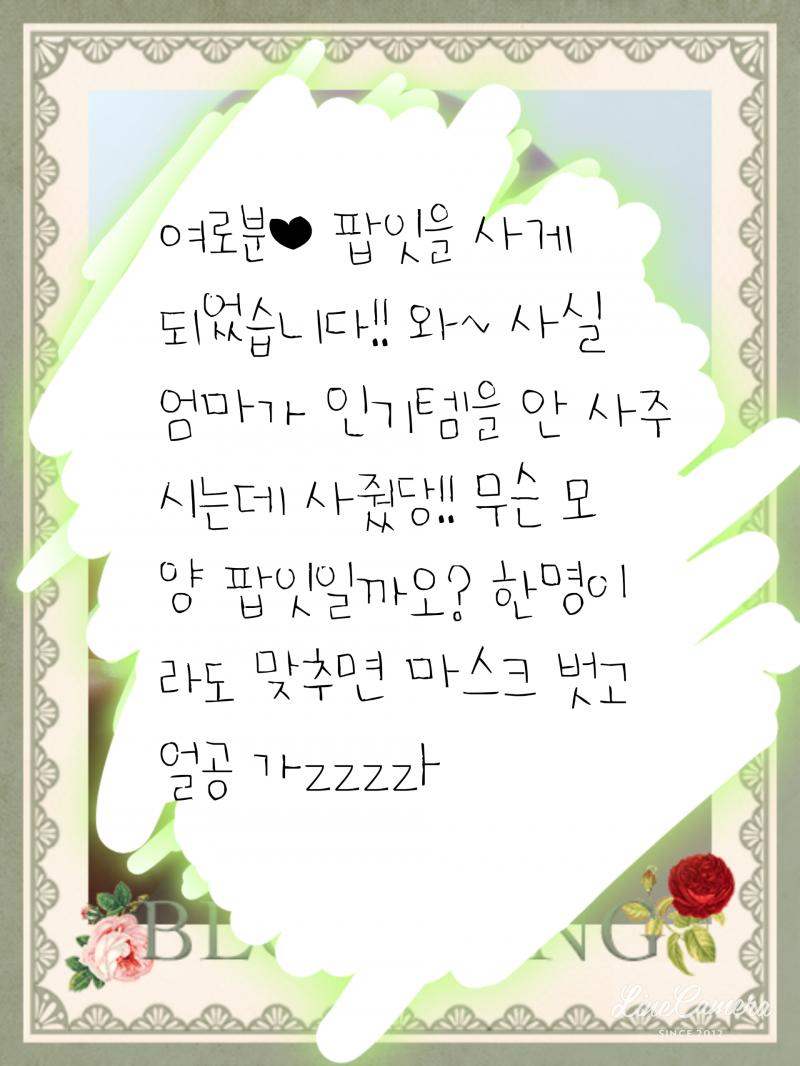 여로분♥ 팝잇을 사게
되었습니다!! 와~ 사실
엄마가 인기템을 안 사주
시는데 사줬당!! 무슨 모
양 팝잇일까오? 한명이
라도 맞추면 마스크 벗고
얼공 가zzzz라
LineCamera
SINCE 2012